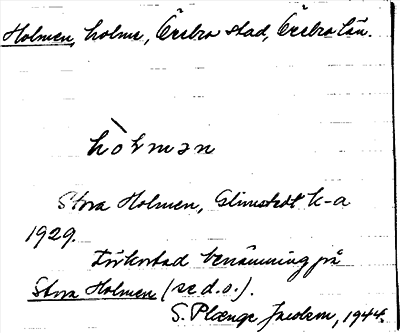 Holmen, holme, Örebro stad, Örebro län.
hòlmən
Stora Holmen, Elmstedt k-a
1929.
Förkortad benämning på
Stora Holmen (se d. o.).
S. Plænge Jacobson, 1944.